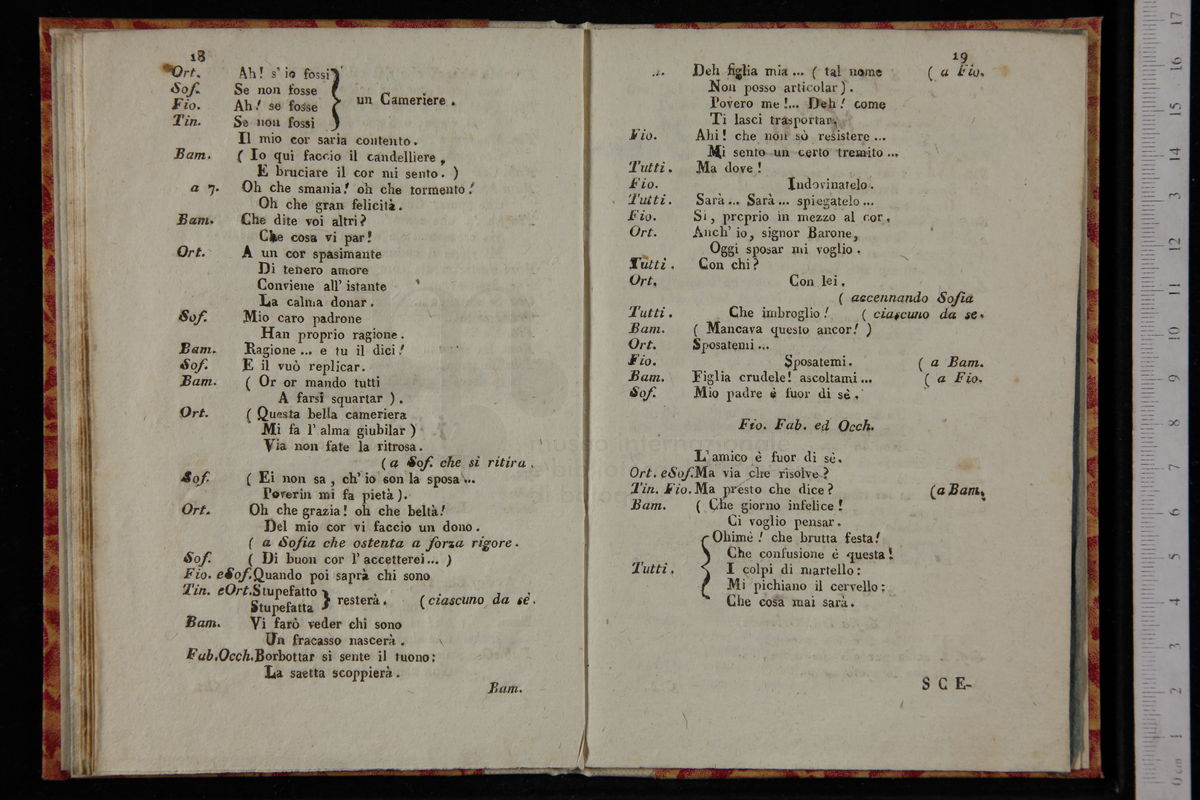 18
Ort. Ah! s' io fossi
Sof. Se non fosse
Fio. Ah! se fosse un Cameriere.
Tin. Se non fossi
Il mio cor saria contento.
Bam. ( Io qui faccio il candelliere,
E bruciare il cor mi sento. )
a 7. Oh che smania! oh che tormento!
Oh che gran felicità.
Bam. Che dite voi altri?
Che cosa vi par!
Ort. A un cor spasimante
Di tenero amore
Conviene all' istante
La calma donar.
Sof. Mio caro padrone
Han proprio ragione.
Bam. Ragione ... e tu il dici!
Sof. E il vuò replicar.
Bam. ( Or or mando tutti
A farsi squartar ).
Ort. ( Questa bella cameriera
Mi fa l' alma giubilar )
Via non fate la ritrosa.
( a Sof. che si ritira.
Sof. ( Ei non sa, ch' io son la sposa ...
Poverin mi fa pietà ).
Ort. Oh che grazia! oh che beltà!
Del mio cor vi faccio un dono.
( a Sofia che ostenta a forza rigore.
Sof. ( Di buon cor l' accetterei ... )
Fio. e Sof. Quando poi saprà chi sono
Tin. e Ort. Stupefatto
Stupefatta resterà. ( ciascuno da sè.
Bam. Vi farò veder chi sono
Un fracasso nascerà.
Fab. Occh. Borbottar si sente il tuono:
La saetta scoppierà.
Bam.
19
Deh figlia mia ... ( tal nome ( a Fio.
Non posso articolar ).
Povero me!... Deh! come
Ti lasci trasportar.
Fio. Ahi! che non sò resistere ...
Mi sento un certo tremito ...
Tutti. Ma dove!
Fio. Indovinatelo.
Tutti. Sarà ... Sarà ... spiegatelo ...
Fio. Si, proprio in mezzo al cor.
Ort. Anch' io, signor Barone,
Oggi sposar mi voglio.
Tutti. Con chi?
Ort. Con lei.
( accennando Sofia
Tutti. Che imbroglio! ( ciascuno da se.
Bam. ( Mancava questo ancor! )
Ort. Sposatemi ...
Fio. Sposatemi. ( a Bam.
Bam. Figlia crudele! ascoltami ... ( a Fio.
Sof. Mio padre è fuor di sè.
Fio. Fab. ed Occh.
L' amico è fuor di sè.
Ort. e Sof. Ma via che risolve?
Tin. Fio. Ma presto che dice? ( a Bam.
Bam. ( Che giorno infelice!
Ci voglio pensar.
Ohimè! che brutta festa!
Che confusione è questa!
Tutti. I colpi di martello:
Mi pichiano il cervello:
Che cosa mai sarà.
S C E-